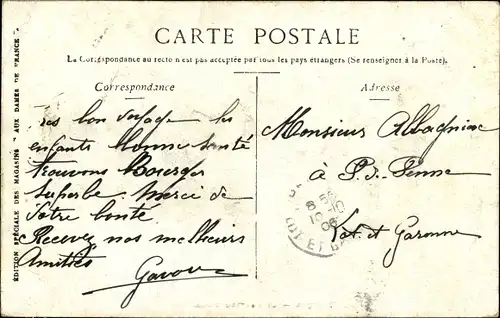 CARTE POSTALE
La Correspondance au recto n'est pas acceptée par tous les pays étrangers (Se renseigner à la Poste).
Correspondance
Très bon voyage les
enfants bonne santé
trouvons Bourges
superbe. Merci de
votre bonté
Recevez nos meilleurs
Amitiés
Adresse
Monsieur
à P. S.
Lot et Garonne
ÉDITION SPÉCIALE DES MAGASINS "AUX DAMES DE FRANCE"